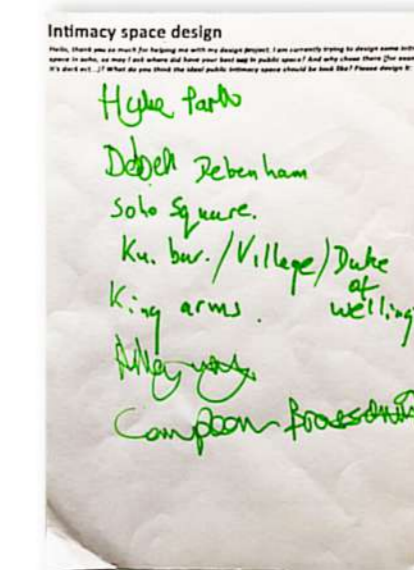 Intimacy space design
Hello, thank you so much for helping me with my design project. I am currently trying to design some inti
space in soho, so may I ask where did have your best in public space? And why chose there (for exam
it's dark ect...)? What do you think the ideal public intimacy space should be look like? Please design it
Hyde Park
Debenham
Soho Square.
Ku. bar. / Village / Duke
of
King arms. welling
Alley way.